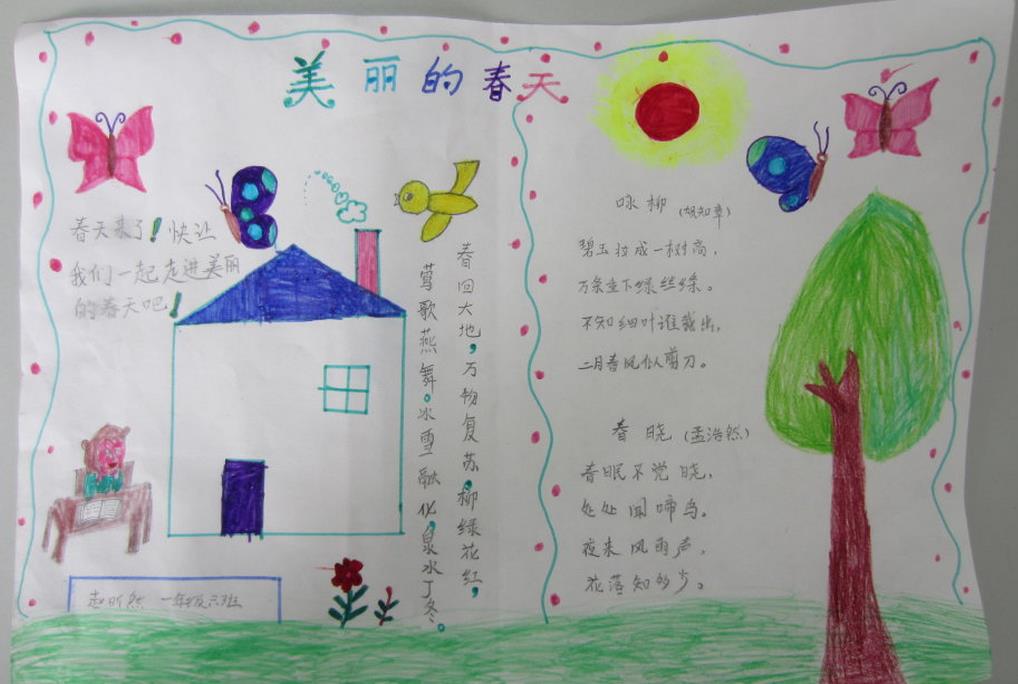 美丽的春天
春天来了！快让
我们一起走进美丽
的春天吧！
春回大地，万物复苏，柳绿花红，
莺歌燕舞。冰雪融化，泉水丁冬。
赵昕然 一年级六班
咏柳 (贺知章)
碧玉妆成一树高，
万条垂下绿丝绦。
不知细叶谁裁出，
二月春风似剪刀。
春晓 (孟浩然)
春眠不觉晓，
处处闻啼鸟。
夜来风雨声，
花落知多少。